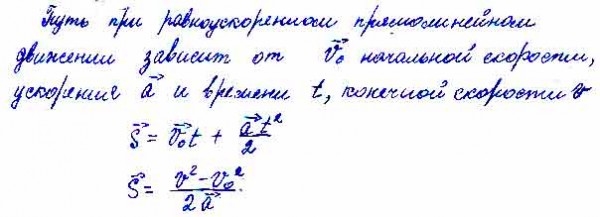 Путь при равноускоренном прямолинейном
движении зависит от v⃗₀ начальной скорости,
ускорения a⃗ и времени t, конечной скорости v
S⃗ = v⃗₀t + a⃗t²/2
S⃗ = v² − v₀²/2a⃗.